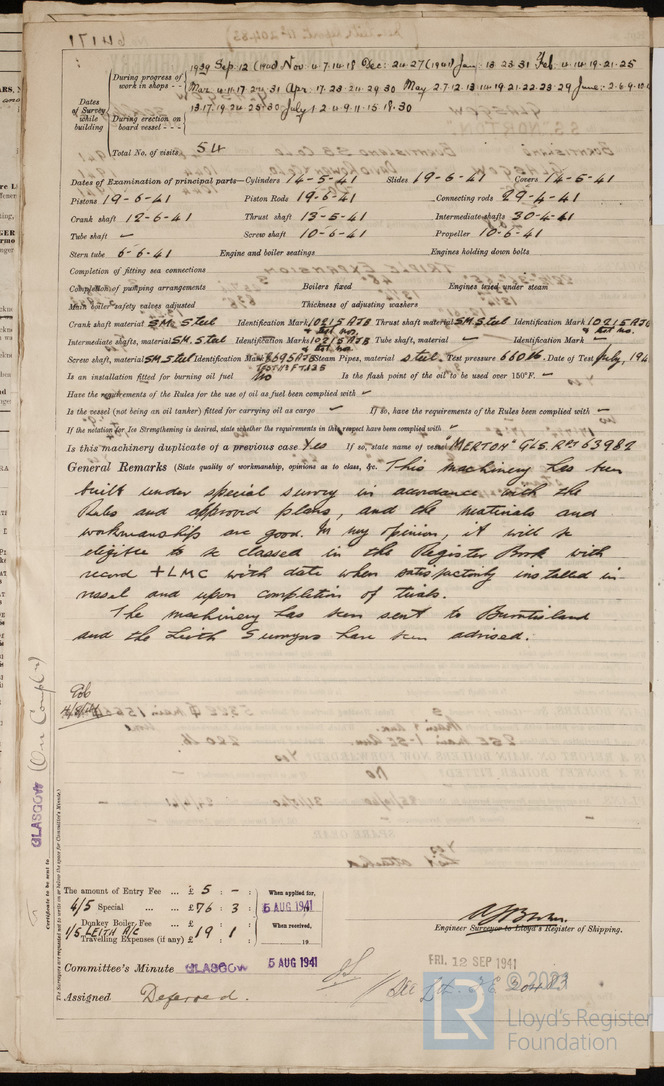 64171
During progress of work in shops - -
1939 Sep. 12 (1940) Nov. 4.7.14.18 Dec: 24.27 (1941) Jan: 13.23.31 Feb. 4.14.19.21.25
Mar. 4.11.17.24.31 Apr. 17.23.24.29.30 May 2.7.12.13.14.19.21.22.23.29 June: 2.6.9.10
Dates of Survey while building
During erection on board vessel - - -
13.17.19.24.25.30. July 1.2.4.9.11.15.18.30
Total No. of visits 54
Dates of Examination of principal parts—Cylinders 14-5-41 Slides 19-6-41 Covers 14-5-41
Pistons 19-6-41 Piston Rods 19-6-41 Connecting rods 29-4-41
Crank shaft 12-6-41 Thrust shaft 13-5-41 Intermediate shafts 30-4-41
Tube shaft - Screw shaft 10-6-41 Propeller 10-6-41
Stern tube 6-6-41 Engine and boiler seatings Engines holding down bolts
Completion of fitting sea connections
Completion of pumping arrangements Boilers fixed Engines tried under steam
Main boiler safety valves adjusted Thickness of adjusting washers
Crank shaft material S.M. Steel Identification Mark 10215 AJB & Let. no. Thrust shaft material S.M. Steel Identification Mark 10215 AJB & Let. no.
Intermediate shafts, material S.M. Steel Identification Marks 10215 AJB & Let. no. Tube shaft, material - Identification Mark -
Screw shaft, material S.M. Steel Identification Mark 8695 AJB Steam Pipes, material Steel Test pressure 660 lb. Date of Test July, 194
Is an installation fitted for burning oil fuel No Is the flash point of the oil to be used over 150°F. -
Have the requirements of the Rules for the use of oil as fuel been complied with -
Is the vessel (not being an oil tanker) fitted for carrying oil as cargo - If so, have the requirements of the Rules been complied with -
If the notation for Ice Strengthening is desired, state whether the requirements in this respect have been complied with -
Is this machinery duplicate of a previous case Yes If so, state name of vessel "MERTON" GLS. RPT 63982
General Remarks (State quality of workmanship, opinions as to class, &c. This machinery has been
built under special survey in accordance with the
Rules and approved plans, and the materials and
workmanship are good. In my opinion, it will be
eligible to be classed in the Register Book with
record +LMC with date when satisfactorily installed in
vessel and upon completion of trials.
The machinery has been sent to Burntisland
and the Leith Surveyors have been advised.
GLASGOW
Certificate to be sent to
The Surveyors are requested not to write on or below the space for Committee's Minute.
The amount of Entry Fee ... £ 5 : - :
4/5 Special ... ... £ 76 : 3 :
Donkey Boiler Fee ... £ : :
1/5 LEITH A/C £ 19 : 1 :
Travelling Expenses (if any) £ : :
When applied for,
5 AUG 1941
When received,
19
Engineer Surveyor to Lloyd's Register of Shipping.
Committee's Minute GLASGOW 5 AUG 1941
FRI. 12 SEP 1941
Assigned Deferred.
© 2023
LR
Lloyd's Register
Foundation